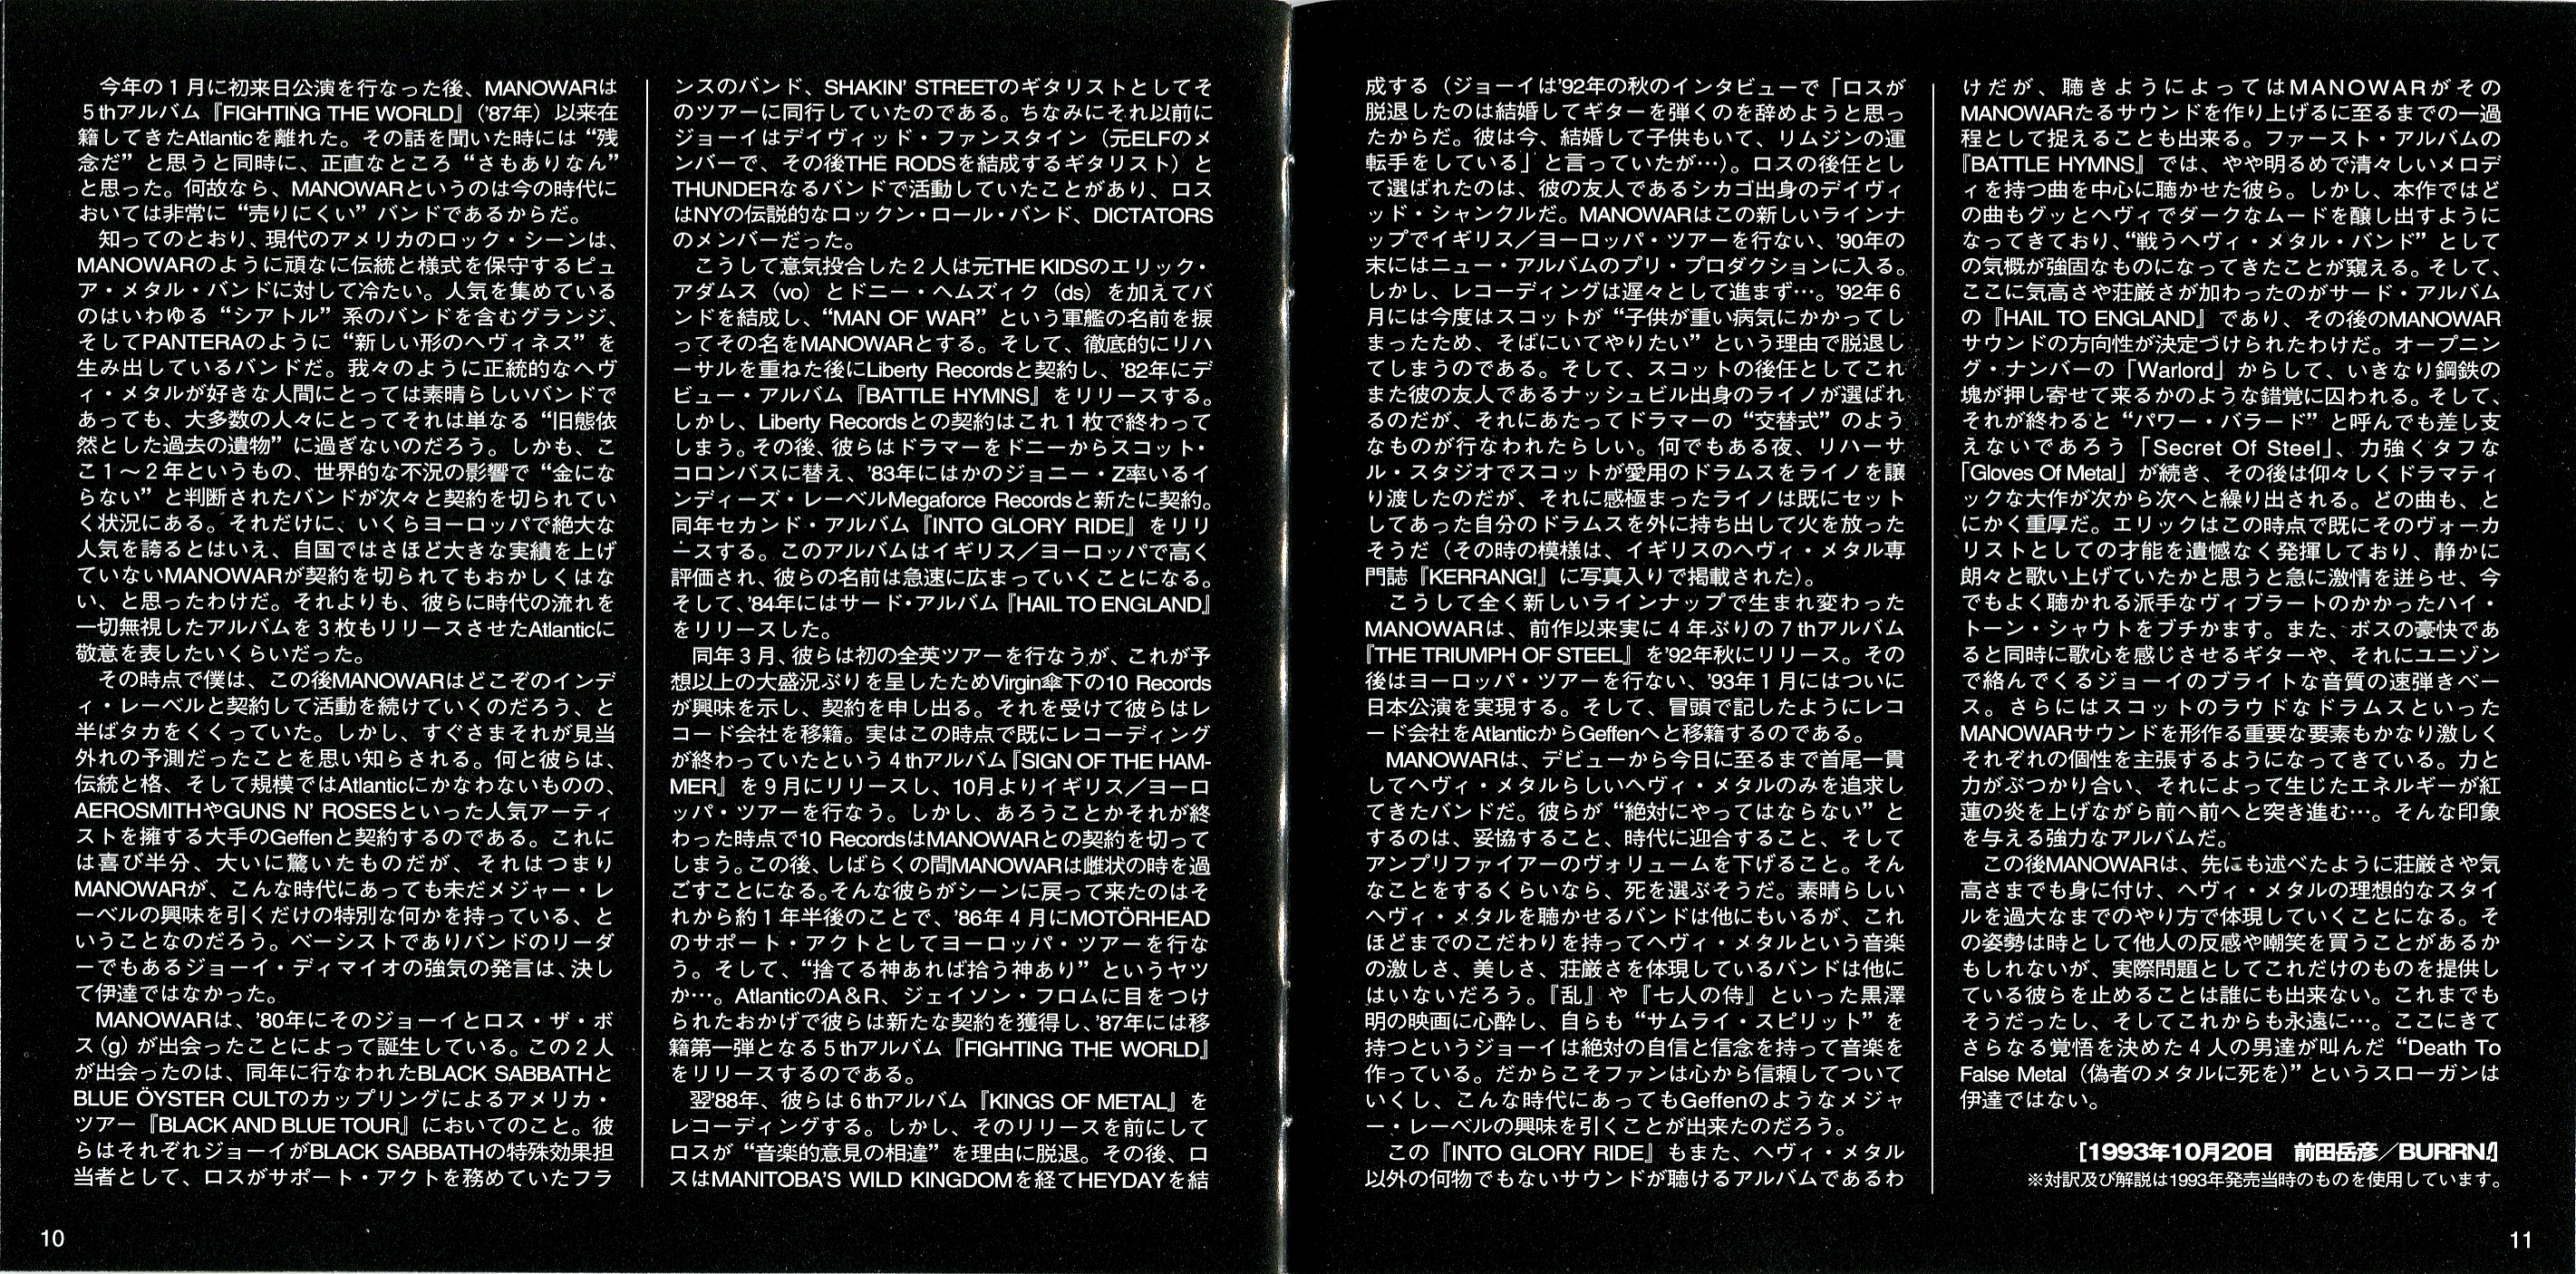 今年の1月に初来日公演を行なった後、MANOWARは
5thアルバム『FIGHTING THE WORLD』('87年）以来在
籍してきたAtlanticを離れた。その話を聞いた時には“残
念だ”と思うと同時に、正直なところ“さもありなん”
と思った。何故なら、MANOWARというのは今の時代に
おいては非常に“売りにくい”バンドであるからだ。
知ってのとおり、現代のアメリカのロック・シーンは、
MANOWARのように頑なに伝統と様式を保守するピュ
ア・メタル・バンドに対して冷たい。人気を集めている
のはいわゆる“シアトル”系のバンドを含むグランジ、
そしてPANTERAのように“新しい形のヘヴィネス”を
生み出しているバンドだ。我々のように正統的なヘヴ
ィ・メタルが好きな人間にとっては素晴らしいバンドで
あっても、大多数の人々にとってそれは単なる“旧態依
然とした過去の遺物”に過ぎないのだろう。しかも、こ
こ1〜2年というもの、世界的な不況の影響で“金にな
らない”と判断されたバンドが次々と契約を切られてい
く状況にある。それだけに、いくらヨーロッパで絶大な
人気を誇るとはいえ、自国ではさほど大きな実績を上げ
ていないMANOWARが契約を切られてもおかしくはな
い、と思ったわけだ。それよりも、彼らに時代の流れを
一切無視したアルバムを3枚もリリースさせたAtlanticに
敬意を表したいくらいだった。
その時点で僕は、この後MANOWARはどこぞのインデ
ィ・レーベルと契約して活動を続けていくのだろう、と
半ばタカをくくっていた。しかし、すぐさまそれが見当
外れの予測だったことを思い知らされる。何と彼らは、
伝統と格、そして規模ではAtlanticにかなわないものの、
AEROSMITHやGUNS N' ROSESといった人気アーティ
ストを擁する大手のGeffenと契約するのである。これに
は喜び半分、大いに驚いたものだが、それはつまり
MANOWARが、こんな時代にあっても未だメジャー・レ
ーベルの興味を引くだけの特別な何かを持っている、と
いうことなのだろう。ベーシストでありバンドのリーダ
ーでもあるジョーイ・ディマイオの強気の発言は、決し
て伊達ではなかった。
MANOWARは、'80年にそのジョーイとロス・ザ・ボ
ス（g）が出会ったことによって誕生している。この2人
が出会ったのは、同年に行なわれたBLACK SABBATHと
BLUE ÖYSTER CULTのカップリングによるアメリカ・
ツアー『BLACK AND BLUE TOUR』においてのこと。彼
らはそれぞれジョーイがBLACK SABBATHの特殊効果担
当者として、ロスがサポート・アクトを務めていたフラ
10
ンスのバンド、SHAKIN' STREETのギタリストとしてそ
のツアーに同行していたのである。ちなみにそれ以前に
ジョーイはデイヴィッド・ファンスタイン（元ELFのメ
ンバーで、その後THE RODSを結成するギタリスト）と
THUNDERなるバンドで活動していたことがあり、ロス
はNYの伝説的なロックン・ロール・バンド、DICTATORS
のメンバーだった。
こうして意気投合した2人は元THE KIDSのエリック・
アダムス（vo）とドニー・ヘムズィク（ds）を加えてバ
ンドを結成し、“MAN OF WAR”という軍艦の名前を捩
ってその名をMANOWARとする。そして、徹底的にリハ
ーサルを重ねた後にLiberty Recordsと契約し、'82年にデ
ビュー・アルバム『BATTLE HYMNS』をリリースする。
しかし、Liberty Recordsとの契約はこれ1枚で終わって
しまう。その後、彼らはドラマーをドニーからスコット・
コロンバスに替え、'83年にはかのジョニー・Z率いるイ
ンディーズ・レーベルMegaforce Recordsと新たに契約。
同年セカンド・アルバム『INTO GLORY RIDE』をリリ
ースする。このアルバムはイギリス／ヨーロッパで高く
評価され、彼らの名前は急速に広まっていくことになる。
そして、'84年にはサード・アルバム『HAIL TO ENGLAND』
をリリースした。
同年3月、彼らは初の全英ツアーを行なうが、これが予
想以上の大盛況ぶりを呈したためVirgin傘下の10 Records
が興味を示し、契約を申し出る。それを受けて彼らはレ
コード会社を移籍。実はこの時点で既にレコーディング
が終わっていたという4thアルバム『SIGN OF THE HAM-
MER』を9月にリリースし、10月よりイギリス／ヨーロ
ッパ・ツアーを行なう。しかし、あろうことかそれが終
わった時点で10 RecordsはMANOWARとの契約を切って
しまう。この後、しばらくの間MANOWARは雌状の時を過
ごすことになる。そんな彼らがシーンに戻って来たのはそ
れから約1年半後のことで、'86年4月にMOTÖRHEAD
のサポート・アクトとしてヨーロッパ・ツアーを行な
う。そして、“捨てる神あれば拾う神あり”というヤツ
か…。AtlanticのA＆R、ジェイソン・フロムに目をつけ
られたおかげで彼らは新たな契約を獲得し、'87年には移
籍第一弾となる5thアルバム『FIGHTING THE WORLD』
をリリースするのである。
翌'88年、彼らは6thアルバム『KINGS OF METAL』を
レコーディングする。しかし、そのリリースを前にして
ロスが“音楽的意見の相違”を理由に脱退。その後、ロ
スはMANITOBA'S WILD KINGDOMを経てHEYDAYを結
成する（ジョーイは'92年の秋のインタビューで「ロスが
脱退したのは結婚してギターを弾くのを辞めようと思っ
たからだ。彼は今、結婚して子供もいて、リムジンの運
転手をしている」と言っていたが…）。ロスの後任とし
て選ばれたのは、彼の友人であるシカゴ出身のデイヴィ
ッド・シャンクルだ。MANOWARはこの新しいラインナ
ップでイギリス／ヨーロッパ・ツアーを行ない、'90年の
末にはニュー・アルバムのプリ・プロダクションに入る。
しかし、レコーディングは遅々として進まず…。'92年6
月には今度はスコットが“子供が重い病気にかかってし
まったため、そばにいてやりたい”という理由で脱退し
てしまうのである。そして、スコットの後任としてこれ
また彼の友人であるナッシュビル出身のライノが選ばれ
るのだが、それにあたってドラマーの“交替式”のよう
なものが行なわれたらしい。何でもある夜、リハーサ
ル・スタジオでスコットが愛用のドラムスをライノを譲
り渡したのだが、それに感極まったライノは既にセット
してあった自分のドラムスを外に持ち出して火を放った
そうだ（その時の模様は、イギリスのヘヴィ・メタル専
門誌『KERRANG!』に写真入りで掲載された）。
こうして全く新しいラインナップで生まれ変わった
MANOWARは、前作以来実に4年ぶりの7thアルバム
『THE TRIUMPH OF STEEL』を'92年秋にリリース。その
後はヨーロッパ・ツアーを行ない、'93年1月にはついに
日本公演を実現する。そして、冒頭で記したようにレコ
ード会社をAtlanticからGeffenへと移籍するのである。
MANOWARは、デビューから今日に至るまで首尾一貫
してヘヴィ・メタルらしいヘヴィ・メタルのみを追求し
てきたバンドだ。彼らが“絶対にやってはならない”と
するのは、妥協すること、時代に迎合すること、そして
アンプリファイアーのヴォリュームを下げること。そん
なことをするくらいなら、死を選ぶそうだ。素晴らしい
ヘヴィ・メタルを聴かせるバンドは他にもいるが、これ
ほどまでのこだわりを持ってヘヴィ・メタルという音楽
の激しさ、美しさ、荘厳さを体現しているバンドは他に
はいないだろう。『乱』や『七人の侍』といった黒澤
明の映画に心酔し、自らも“サムライ・スピリット”を
持つというジョーイは絶対の自信と信念を持って音楽を
作っている。だからこそファンは心から信頼してついて
いくし、こんな時代にあってもGeffenのようなメジャ
ー・レーベルの興味を引くことが出来たのだろう。
この『INTO GLORY RIDE』もまた、ヘヴィ・メタル
以外の何物でもないサウンドが聴けるアルバムであるわ
けだが、聴きようによってはMANOWARがその
MANOWARたるサウンドを作り上げるに至るまでの一過
程として捉えることも出来る。ファースト・アルバムの
『BATTLE HYMNS』では、やや明るめで清々しいメロデ
ィを持つ曲を中心に聴かせた彼ら。しかし、本作ではど
の曲もグッとヘヴィでダークなムードを醸し出すように
なってきており、“戦うヘヴィ・メタル・バンド”として
の気概が強固なものになってきたことが窺える。そして、
ここに気高さや荘厳さが加わったのがサード・アルバム
の『HAIL TO ENGLAND』であり、その後のMANOWAR
サウンドの方向性が決定づけられたわけだ。オープニン
グ・ナンバーの「Warlord」からして、いきなり鋼鉄の
塊が押し寄せて来るかのような錯覚に囚われる。そして、
それが終わると“パワー・バラード”と呼んでも差し支
えないであろう「Secret Of Steel」、力強くタフな
「Gloves Of Metal」が続き、その後は仰々しくドラマティ
ックな大作が次から次へと繰り出される。どの曲も、と
にかく重厚だ。エリックはこの時点で既にそのヴォーカ
リストとしての才能を遺憾なく発揮しており、静かに
朗々と歌い上げていたかと思うと急に激情を迸らせ、今
でもよく聴かれる派手なヴィブラートのかかったハイ・
トーン・シャウトをブチかます。また、ボスの豪快であ
ると同時に歌心を感じさせるギターや、それにユニゾン
で絡んでくるジョーイのブライトな音質の速弾きベー
ス。さらにはスコットのラウドなドラムスといった
MANOWARサウンドを形作る重要な要素もかなり激しく
それぞれの個性を主張するようになってきている。力と
力がぶつかり合い、それによって生じたエネルギーが紅
蓮の炎を上げながら前へ前へと突き進む…。そんな印象
を与える強力なアルバムだ。
この後MANOWARは、先にも述べたように荘厳さや気
高さまでも身に付け、ヘヴィ・メタルの理想的なスタイ
ルを過大なまでのやり方で体現していくことになる。そ
の姿勢は時として他人の反感や嘲笑を買うことがあるか
もしれないが、実際問題としてこれだけのものを提供し
ている彼らを止めることは誰にも出来ない。これまでも
そうだったし、そしてこれからも永遠に…。ここにきて
さらなる覚悟を決めた4人の男達が叫んだ“Death To
False Metal（偽者のメタルに死を）”というスローガンは
伊達ではない。
［1993年10月20日 前田岳彦／BURRN!］
※対訳及び解説は1993年発売当時のものを使用しています。
11